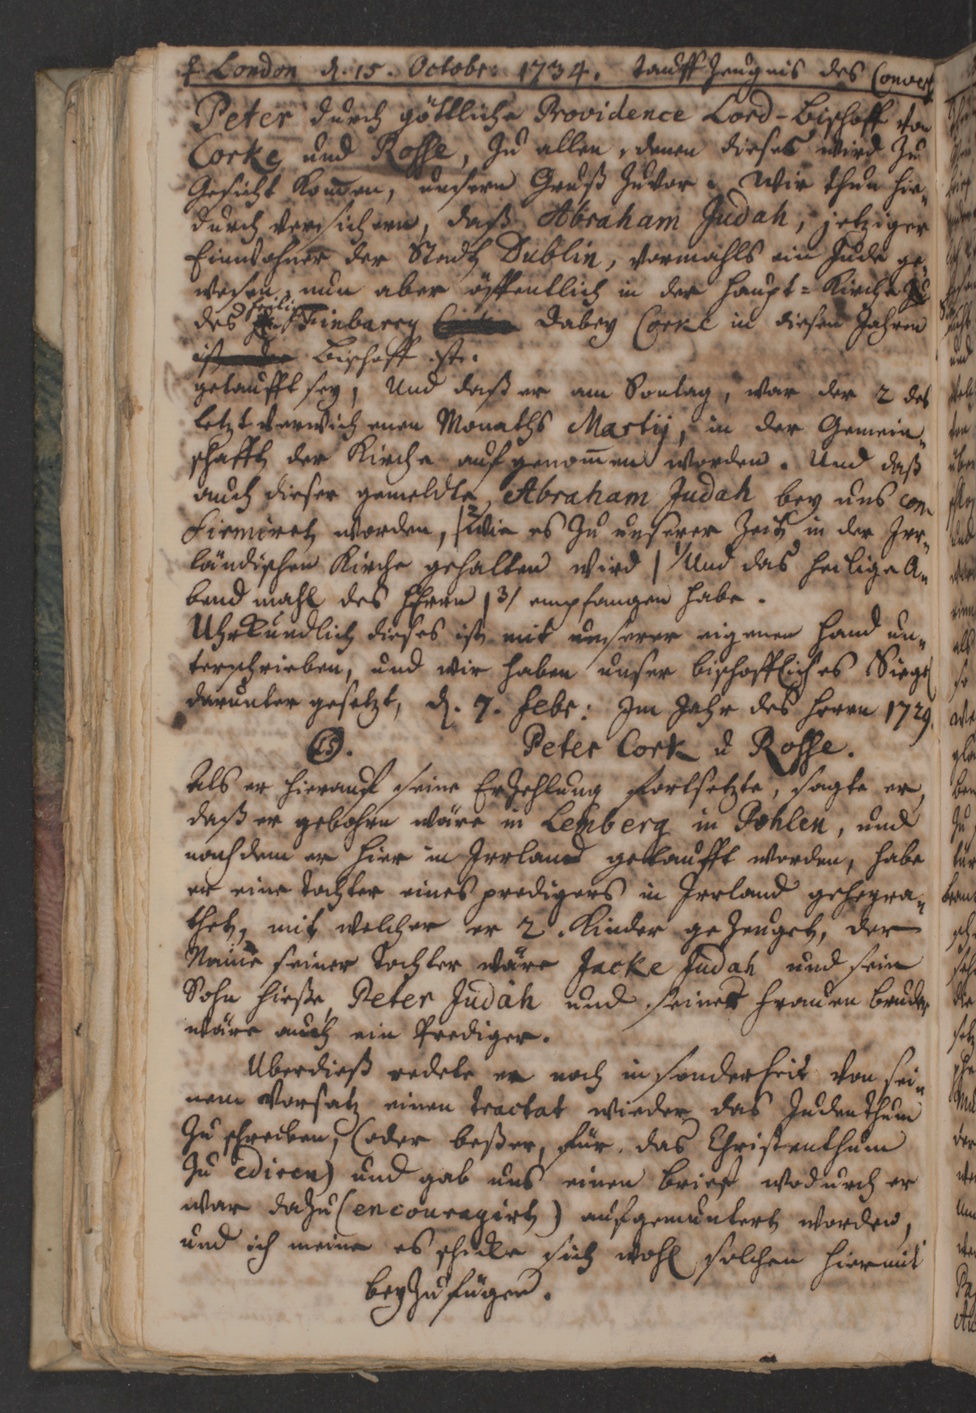 London d. 15. Octobr: 1734. Tauff Zeugnis des Convert
Peter durch göttliche Providence Lord-Bischoff von
Corke und Rosse, Zu allen, denen dieses wird Zu
Gesicht kommen, unsern Gruß Zuvor. Wir thun hie-
durch versichern, daß Abraham Judah, jetziger
Einwohner der Stadt Dublin, vormahls ein Jude ge-
wesen, nun aber öffentlich in der Haupt-Kirche
des Finbarry dabey Corke in diesem Jahren
Bischoff ist.
getaufft sey, Und daß er am Sontag, war der 2 des
letzt verwichenen Monaths Martij, in der Gemein-
schafft der Kirche aufgenom̄en worden. Und daß
auch dieser gemeldte, Abraham Judah bey uns con-
firmiret worden, |2 wie es Zu unserer Zeit in der Irr-
ländischen Kirche gehalten wird | Und das heilige A-
bendmahl des Herrn |3/ empfangen habe.
Uhrkundlich dieses ist mit unserer eigenen Hand un-
terschrieben, und wir haben unser bischofflich es Siegel
darunter gesetzt, d. 7. Febr: Im Jahr des Herrn 1729.
LS. Peter Cork u Rosse.
Als er hierauf seine Erzehlung fortsetzte, sagte er,
daß er gebohrn wäre in Lemberg in Pohlen, und
nachdem er hier in Irrland getaufft worden, habe
er eine Tochter eines predigers in Irrland geheyra-
thet, mit welcher er 2. Kinder geZeuget, der
Name seiner Tochter wäre Jacke Judah und sein
Sohn hieße Peter Judah und seiner Frauen Bruder
wäre auch ein Prediger.
Uberdieß redete er noch insonderheit von sei-
nem Vorsatz einen tractat wieder das Judenthum
Zu schreiben, (oder beßer, für das Christenthum
Zu ediren) und gab uns einen brief wodurch er
war dazu (encouragirt) aufgemuntert worden,
und ich meine es schicke sich wohl solchen hiermit
beyZufügen.